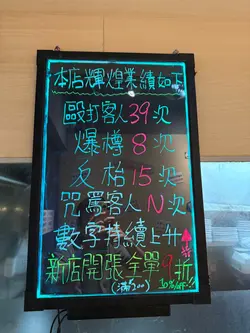 本店輝煌業績如下
毆打客人39次
爆樽8次
反枱15次
咒罵客人N次
數字持續上升
新店開張全單9折
(滿200) 10% OFF!!